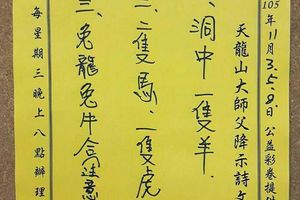 105年11月3.5.8日公益彩卷提供
天龍山大師父降示詩文
、洞中一隻羊.
二、二隻馬.一隻虎
三、兔龍兔牛合注意
每星期三晚上八點辦理